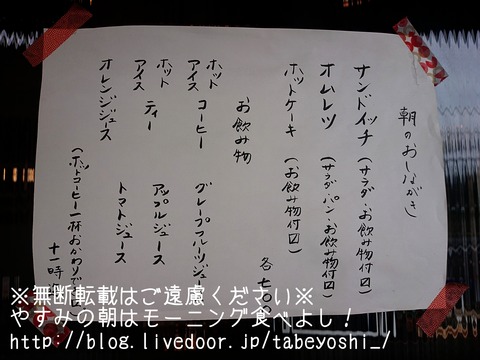 朝のおしながき
サンドイッチ(サラダ・お飲み物付)
オムレツ(サラダ・パン・お飲み物付)
ホットケーキ(お飲み物付)
各七〇〇
お飲み物
ホット
アイス コーヒー グレープフルーツジュー
ホット
アイス ティー アップルジュース
オレンジジュース トマトジュース
(ホットコーヒー一杯おかわり
十一時
※無断転載はご遠慮ください※
やすみの朝はモーニング食べよし！
http://blog.livedoor.jp/tabeyoshi_/